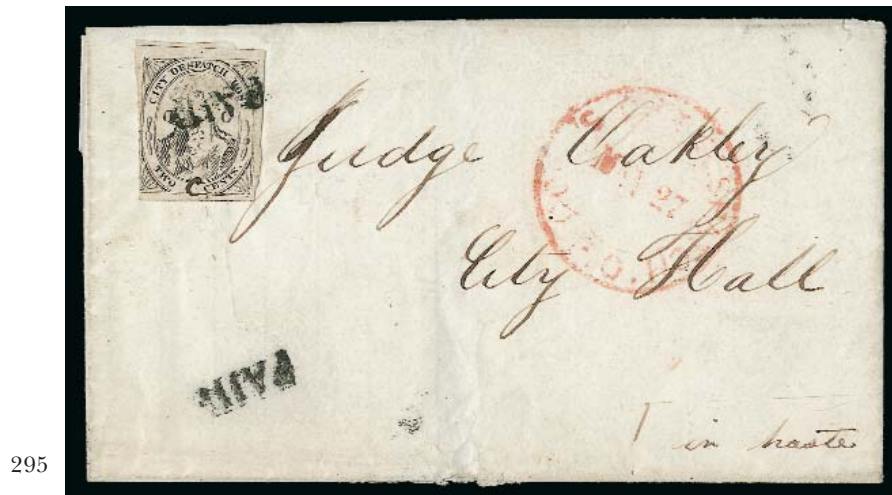 CITY DESPATCH POST
PAID
TWO CENTS.
C
Judge Oakley
City Hall
27
PAID
in haste
295